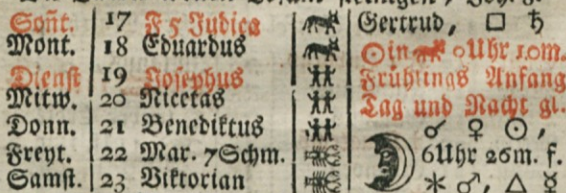 Soñt. 17 F 5 Judica Gertrud, □ ♄
Mont. 18 Eduardus ☉ in ♈ 0 Uhr 10m.
Dienst 19 Josephus Frühlings Anfang
Mitw. 20 Nicetas Tag und Nacht gl.
Donn. 21 Benediktus ☌ ♀ ☉,
Freyt. 22 Mar. 7Schm. 6Uhr 26m. f.
Samst. 23 Viktorian ⚹ ♂ △ ☿